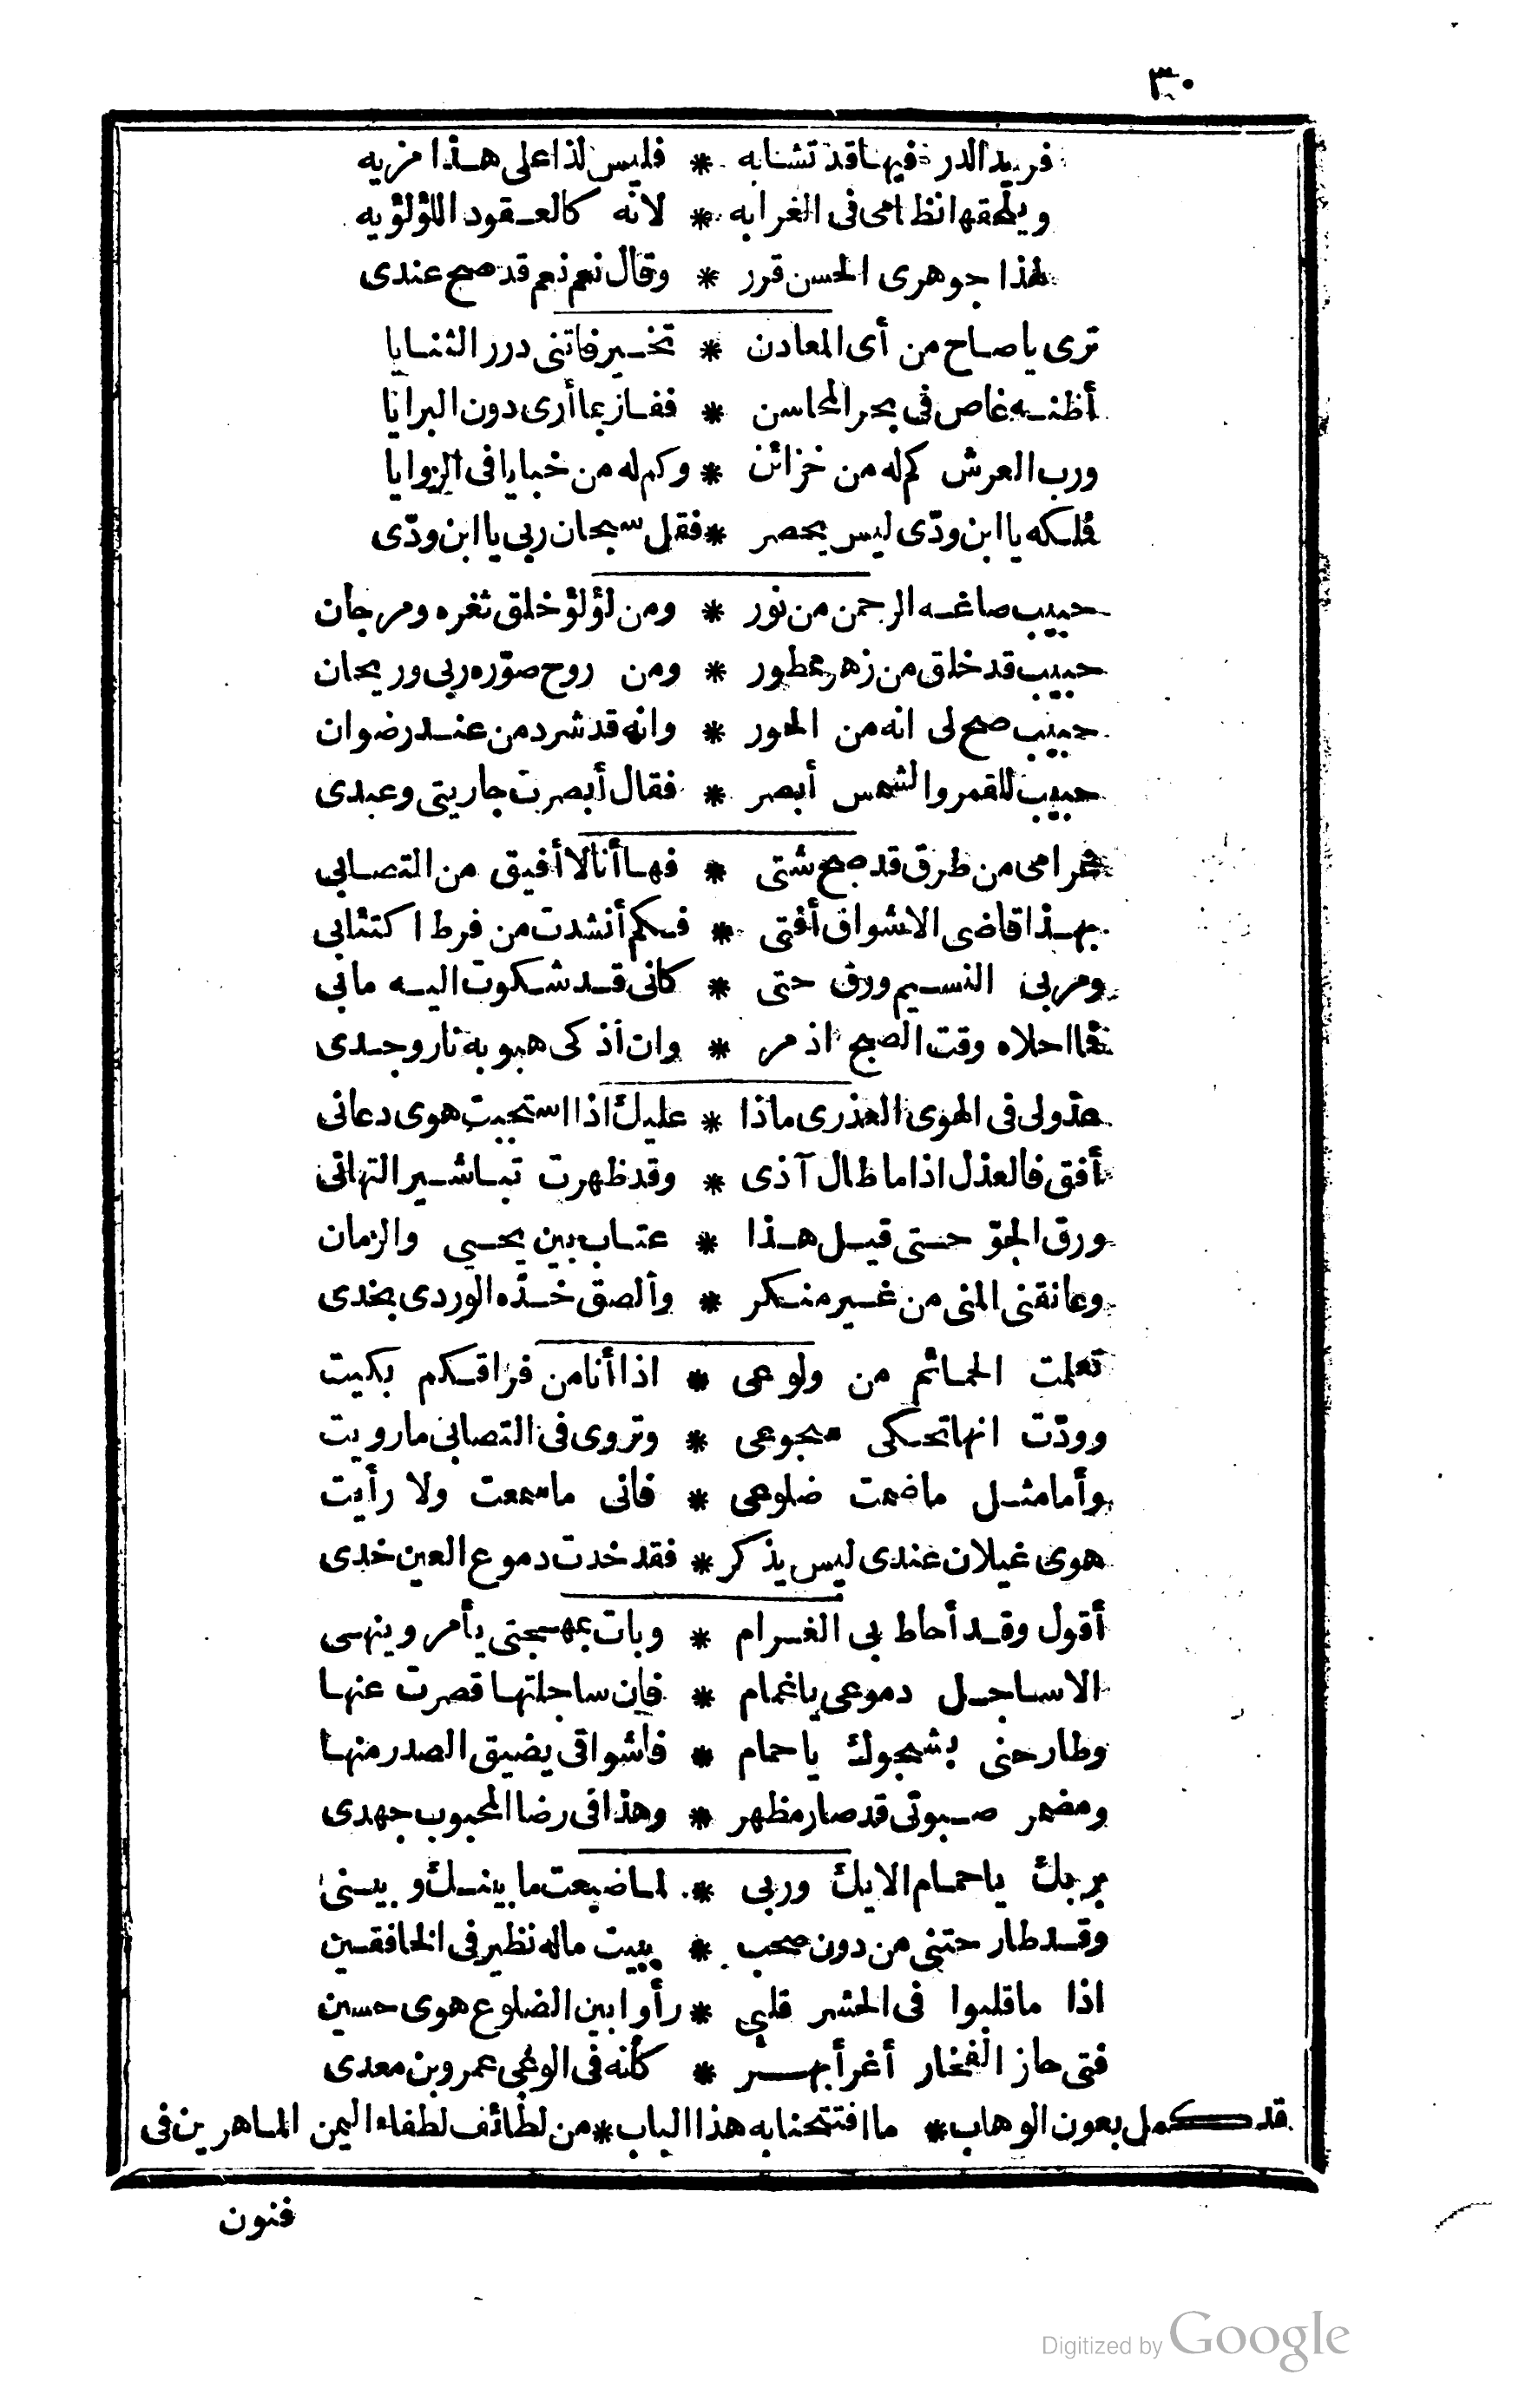 ٣٠
فريد الدر فيها قد تشابه * فليس لذا على هذا مزيه
ويلحقها نظامى فى الغرابه * لانه كالعقود اللؤلؤيه
لهذا جوهرى الحسن قرر * وقال نعم نعم قد صح عندى
ترى ياصاح من أى المعادن * تخير فاتنى درر الثنايا
أظنه غاص فى بحر المحاسن * ففاز بما أرى دون البرايا
ورب العرش كم له من خزائن * وكم له من خبايا فى الزوايا
فملكه يا ابن ودّى ليس يحصر * فقل سبحان ربى يا ابن ودّى
حبيب صاغه الرحمن من نور * ومن لؤلؤ خلق ثغره ومرجان
حبيب قد خلق من زهر ممطور * ومن روح صوّره ربى وريحان
حبيب صح لى انه من الحور * وانه قد شرد من عند رضوان
حبيب للقمر والشمس أبصر * فقال أبصرت جاريتى وعبدى
غرامى من طرق قد صح شتى * فها أنا لا أفيق من التصابى
بهذا قاضى الاشواق أفتى * فكم أنشدت من فرط اكتئابى
ومر بى النسيم ورق حتى * كانى قد شكوت اليه مابى
فما احلاه وقت الصبح اذ مر * وان أذكى هبوبه نار وجدى
عذولى فى الهوى العذرى ماذا * عليك اذا استجبت هوى دعانى
أفق فالعذل اذا ما طال آذى * وقد ظهرت تباشير التهانى
ورق الجوّ حتى قيل هذا * عتاب بين يحيى والزمان
وعانقنى المنى من غير منكر * وألصق خدّه الوردى بخدى
تعلمت الحمائم من ولوعى * اذا أنا من فراقكم بكيت
وودّت انها تحكى هجوعى * وتروى فى التصابى ما رويت
وأما مثل ماضمت ضلوعى * فانى ماسمعت ولا رأيت
هوى غيلان عندى ليس يذكر * فقد خدت دموع العين خدى
أقول وقد أحاط بى الغرام * وبات بمهجتى يأمر وينهى
الا ساجل دموعى ياغمام * فان ساجلتها قصرت عنها
وطارحنى بشجوك ياحمام * فأشواقى يضيق الصدر منها
ومضمر صبوتى قد صار مظهر * وهذا فى رضا المحبوب جهدى
بربك ياحمام الايك وربى * لما ضيعت ما بينك وبينى
وقد طارحتنى من دون صحب * ببيت ماله نظير فى الخافقين
اذا ماقلبوا فى الحشر قلبى * رأوا بين الضلوع هوى حسين
فتى حاز الفخار أغر أبهر * كأنه فى الوغى عمرو بن معدى
قد كمل بعون الوهاب * ما افتتحنا به هذا الباب * من لطائف لطفاء اليمن الماهرين فى
فنون
Digitized by Google